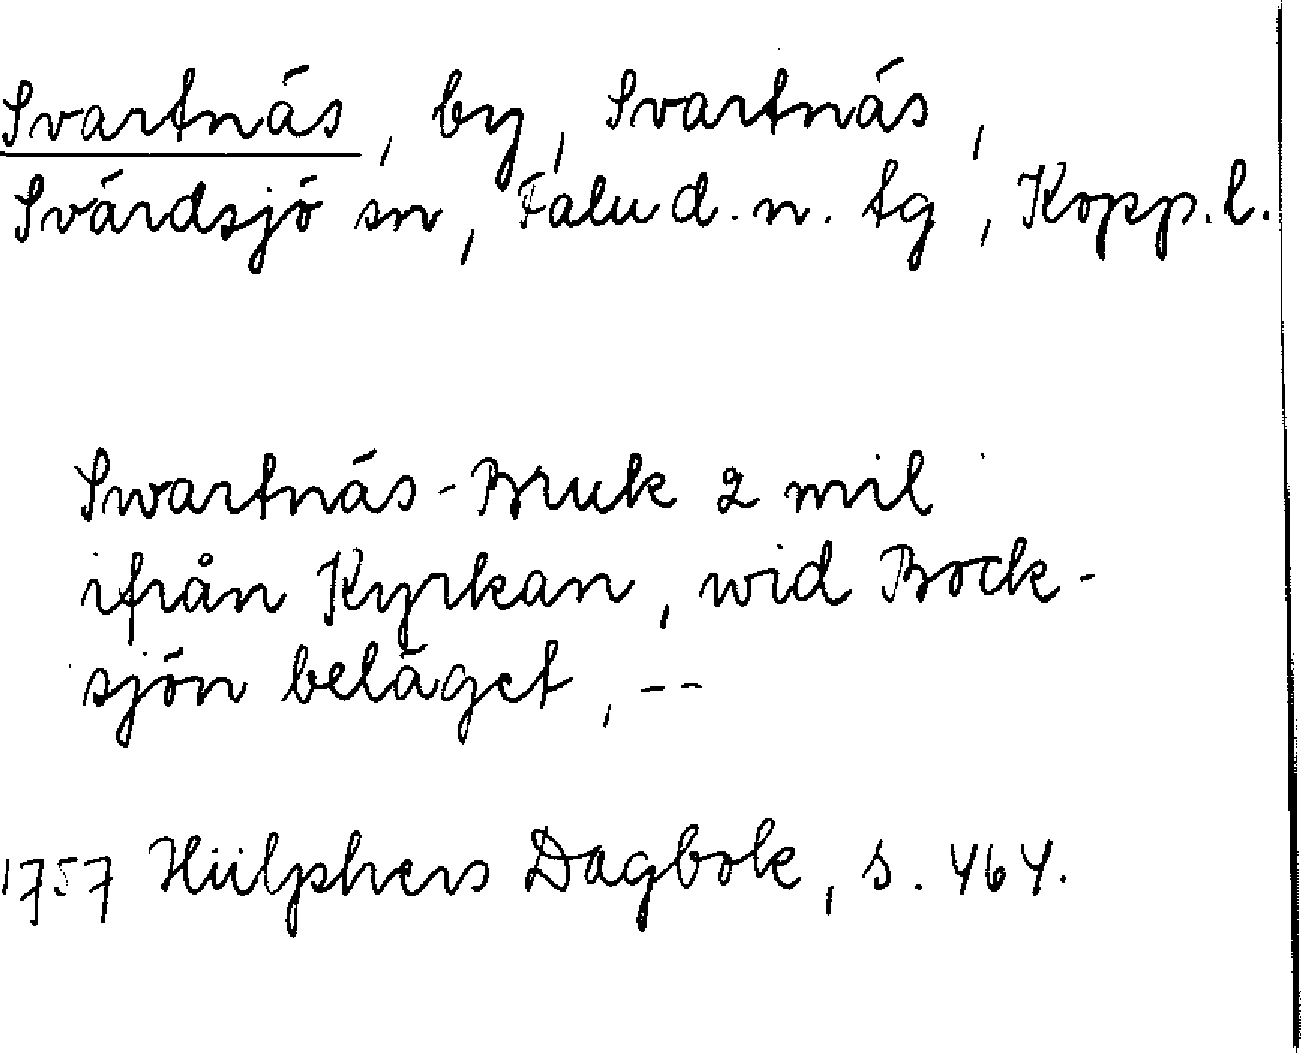 Svartnäs, by, Svartnäs,
Svärdsjö sn, Falu d. n. tg, Kopp. l.
Swartnäs-Bruk 2 mil
ifrån Kyrkan, wid Bock-
sjön beläget, --
1757 Hülphers Dagbok, s. 464.